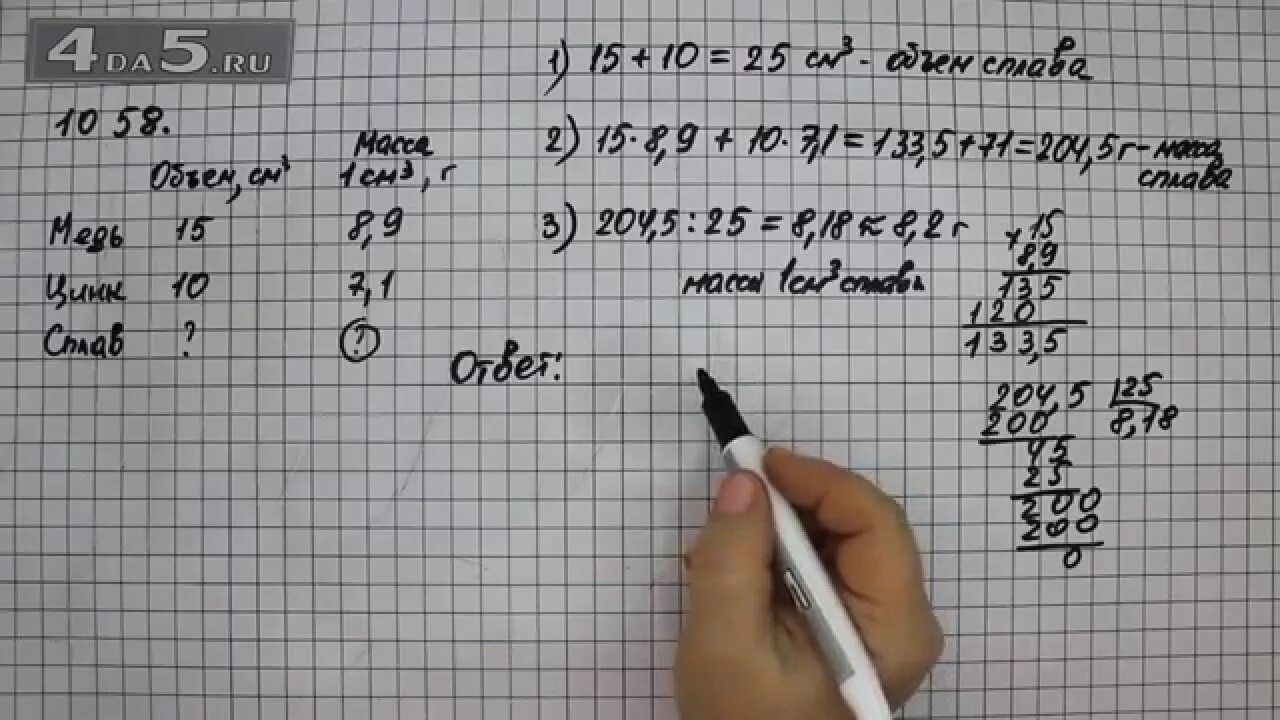 4DA5.RU
1058.
Объем, см³ Масса 1 см³, г
Медь 15 8,9
Цинк 10 7,1
Сплав ? ?
1) 15 + 10 = 25 см³ - объем сплава
2) 15·8,9 + 10·7,1 = 133,5 + 71 = 204,5 г - масса сплава
3) 204,5 : 25 = 8,18 ≈ 8,2 г
масса 1 см³ сплава
Ответ:
× 15
8,9
135
120
133,5
204,5 25
200 8,18
45
25
200
200
0